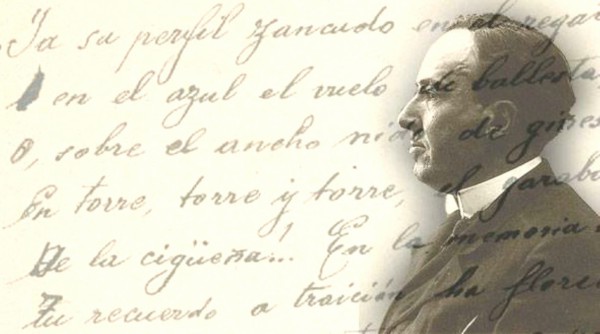 Ya su perfil zancudo en el regat
en el azul el vuelo de ballesta,
o, sobre el ancho nido de gines
En torre, torre y torre, el garaba
De la cigüeña!.. En la memoria
Tu recuerdo a traición ha flore